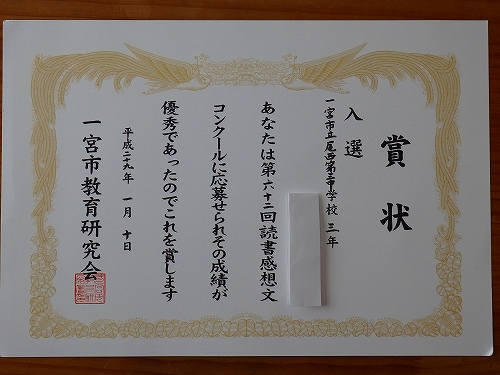 賞状
入選
一宮市立尾西第三中学校 三年
あなたは第六十二回読書感想文
コンクールに応募せられその成績が
優秀であったのでこれを賞します
平成二十九年 一月 十日
一宮市教育研究会